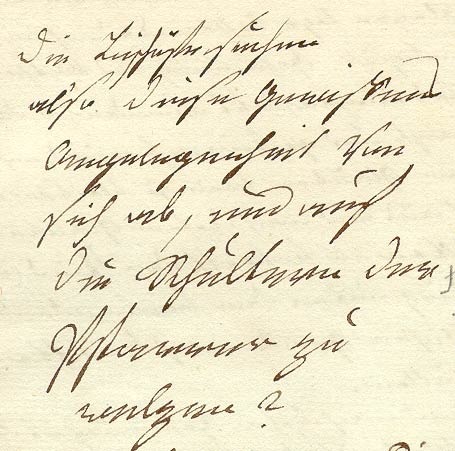 Die Bischöfe suchen
also diese Gewissens
Angelegenheit von
sich ab, und auf
die Schultern der
Pfarrer zu
welzen?